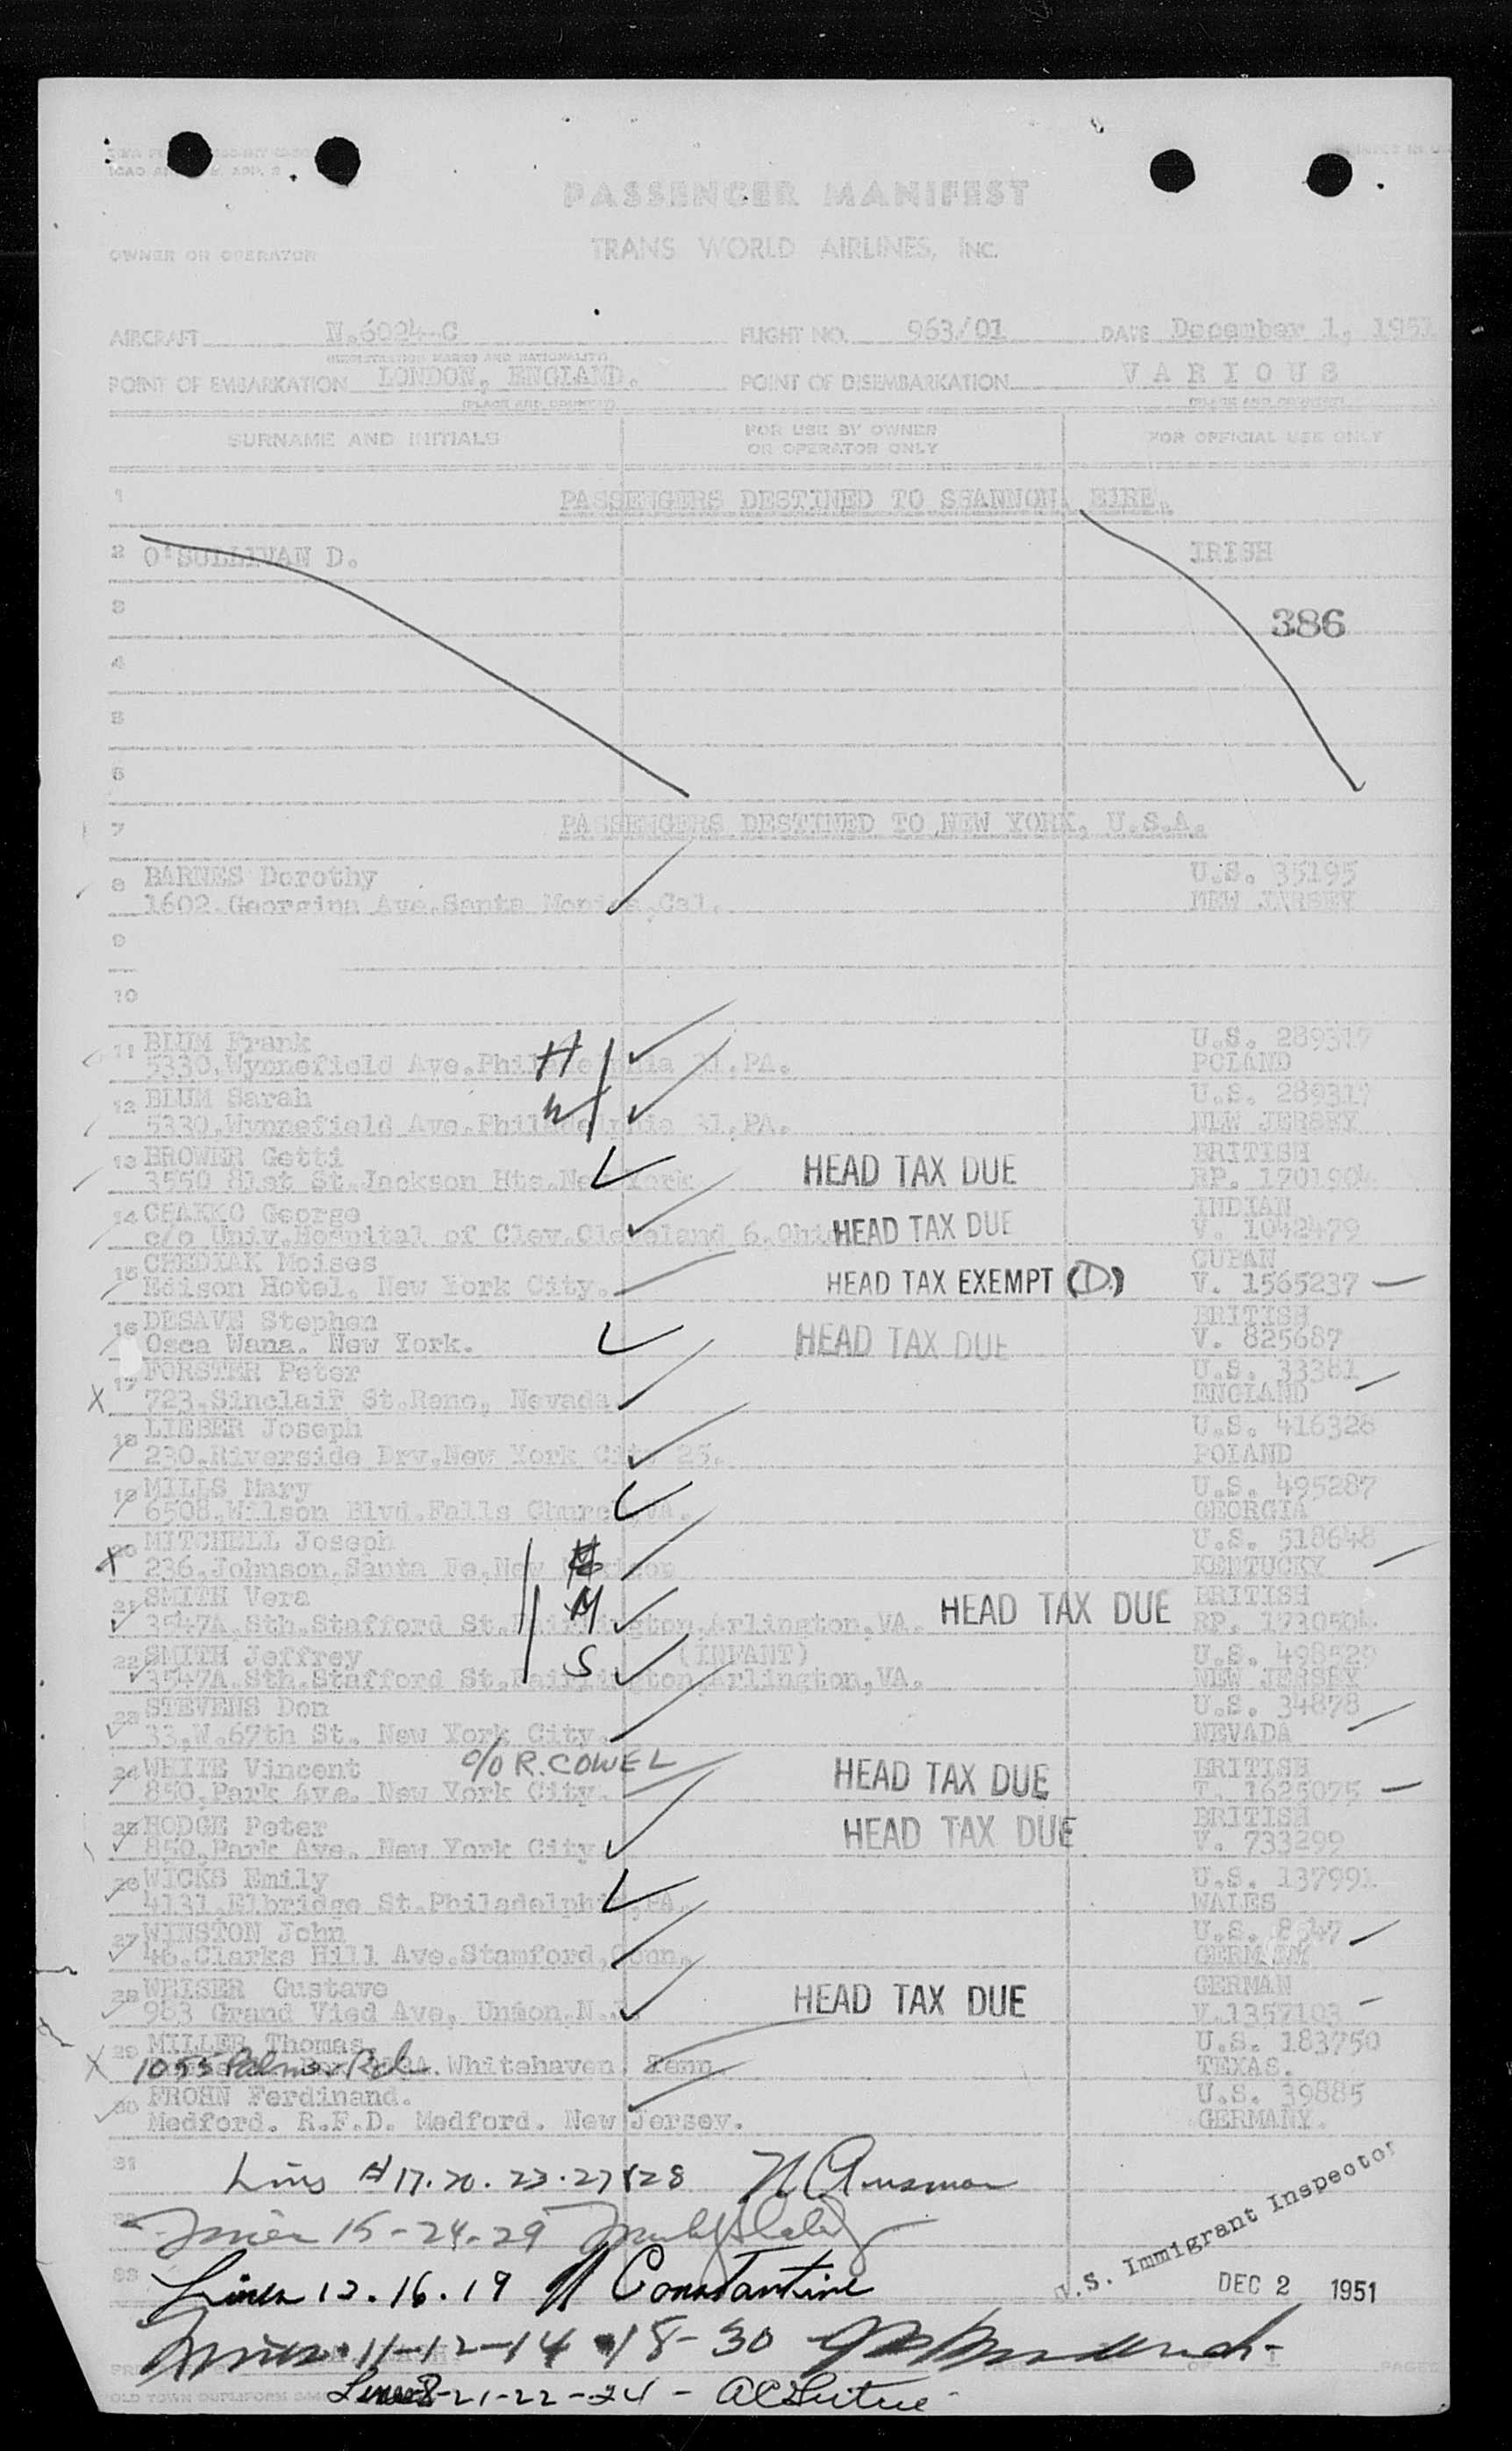 PASSENGER MANIFEST
OWNER OR OPERATOR TRANS WORLD AIRLINES, INC.
AIRCRAFT N.6024-C FLIGHT NO. 963/01 DATE December 1, 1951
(REGISTRATION MARKS AND NATIONALITY)
POINT OF EMBARKATION LONDON, ENGLAND. POINT OF DISEMBARKATION VARIOUS
(PLACE AND COUNTRY) (PLACE AND COUNTRY)
SURNAME AND INITIALS FOR USE BY OWNER OR OPERATOR ONLY FOR OFFICIAL USE ONLY
1 PASSENGERS DESTINED TO SHANNON, EIRE.
2 O'SULLIVAN D. IRISH
3 386
4
5
6
7 PASSENGERS DESTINED TO NEW YORK, U.S.A.
8 BARNES Dorothy U.S. 35195
1602.Georgina Ave.Santa Monica,Cal. NEW JERSEY
9
10
11 BLUM Frank H U.S. 289317
5330.Wynnefield Ave.Philadelphia 31.PA. POLAND
12 BLUM Sarah W U.S. 289317
5330.Wynnefield Ave.Philadelphia 31.PA. NEW JERSEY
13 BROWER Getti BRITISH
3550 81st St.Jackson Hts.New York HEAD TAX DUE RP. 1701904
14 CHAKKO George INDIAN
c/o Univ.Hospital of Clev.Cleveland 6.Ohio HEAD TAX DUE V. 1042479
15 CHEDIAK Moises CUBAN
Edison Hotel. New York City. HEAD TAX EXEMPT (D) V. 1565237
16 DESAVE Stephen BRITISH
Osca Wana. New York. HEAD TAX DUE V. 825687
17 FORSTER Peter U.S. 33381
X 723.Sinclair St.Reno, Nevada ENGLAND
18 LIEBER Joseph U.S. 416326
230.Riverside Drv.New York City 25. POLAND
19 MILLS Mary U.S. 495287
6508.Wilson Blvd.Falls Church,VA. GEORGIA
20 MITCHELL Joseph U.S. 518648
X 236.Johnson,Santa Fe,New KENTUCKY
21 SMITH Vera M BRITISH
3547A.Sth.Stafford St.Fairlington,Arlington,VA. HEAD TAX DUE RP. 1730504
22 SMITH Jeffrey S (INFANT) U.S. 498529
3547A.Sth.Stafford St.Fairlington,Arlington,VA. NEW JERSEY
23 STEVENS Don U.S. 34878
33.W.67th St. New York City. NEVADA
24 WHITE Vincent c/o R. COWEL BRITISH
850.Park Ave. New York City. HEAD TAX DUE T. 1625075
25 HODGE Peter BRITISH
850.Park Ave. New York City HEAD TAX DUE V. 733299
26 WICKS Emily U.S. 137991
4131.Elbridge St.Philadelphia,PA. WALES
27 WINSTON John U.S. 8547
46.Clarks Hill Ave.Stamford,Conn. GERMANY
28 WEISER Gustave GERMAN
963 Grand Vied Ave, Union,N.J. HEAD TAX DUE V.1357103
29 MILLER Thomas U.S. 183750
X 1055 Palmer Rd Whitehaven. Tenn TEXAS.
30 FROHN Ferdinand. U.S. 39885
Medford. R.F.D. Medford. New Jersey. GERMANY.
31 Lines #17.20.23.27&28
32 15-24-29
33 Lines 13.16.19 Constantine
U.S. Immigrant Inspector
DEC 2 1951
Lines 11-12-14-18-30
Lines 8-21-22-24 -